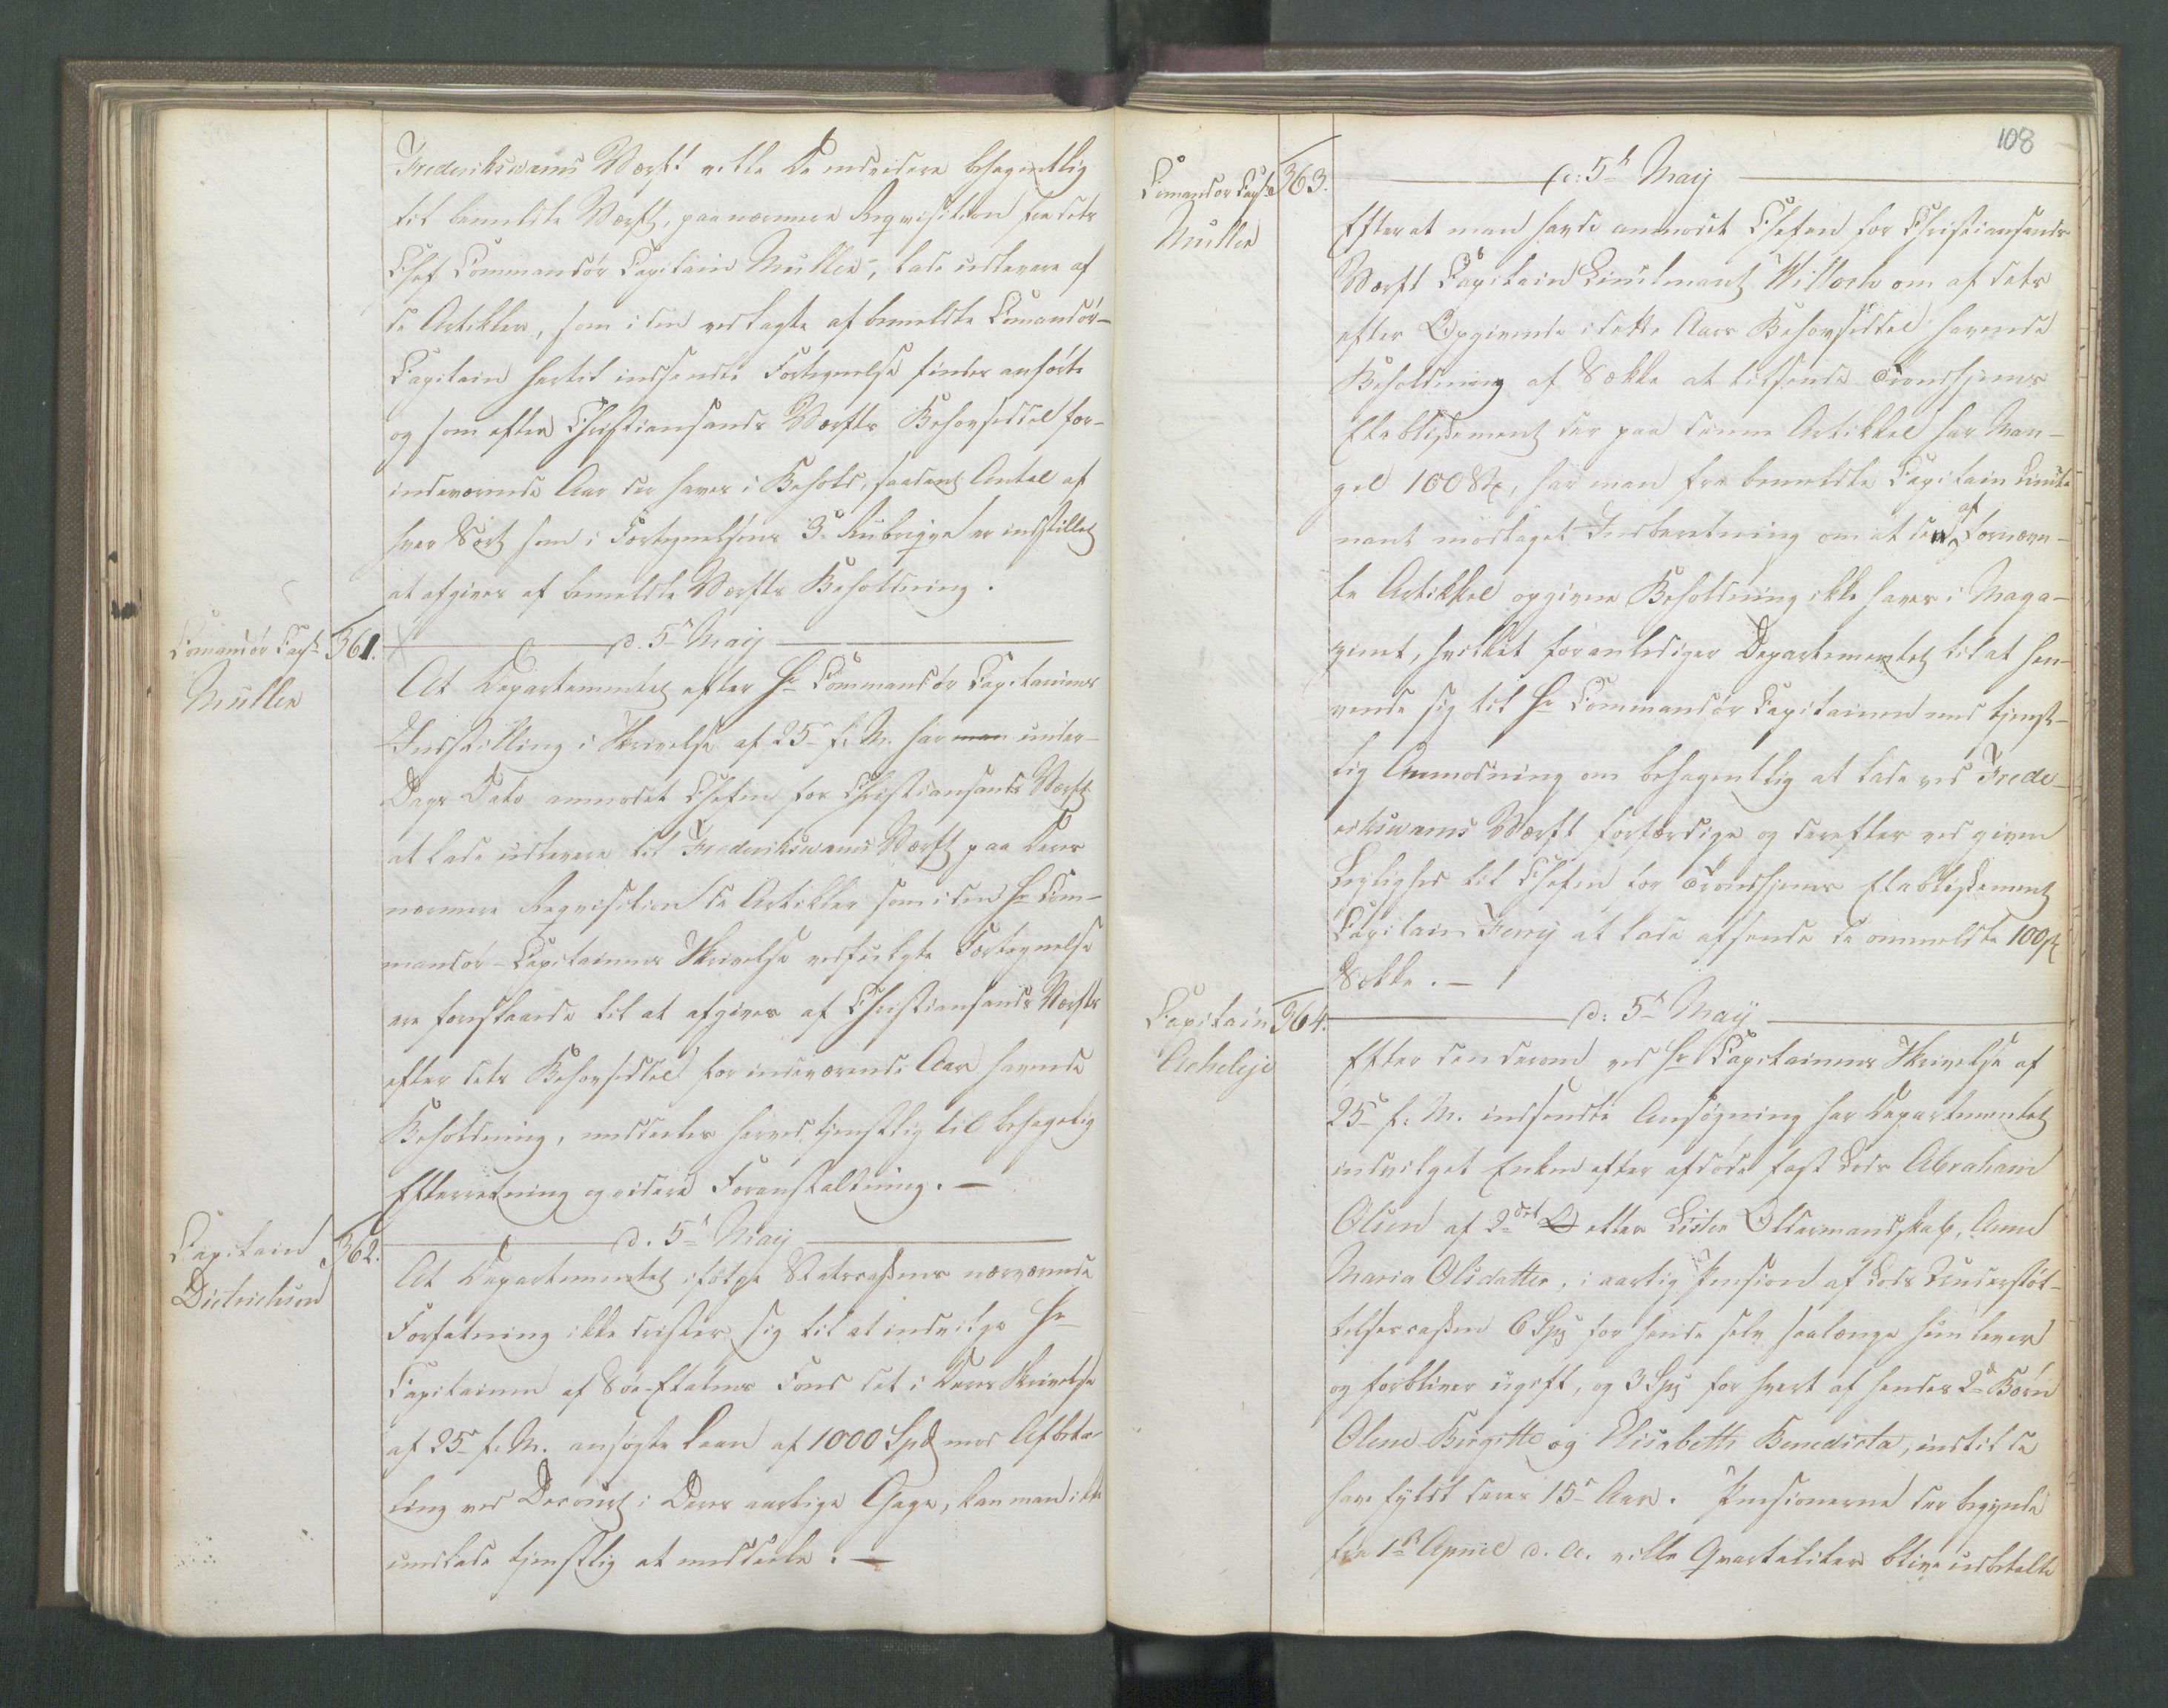 Frederiksværns Værft ville De endvidere behageligt
til bemeldte Værft, paa nærmere Reqvisition fra dets
Chef Commandör Capitain Müller, lade udlevere af
de Artikler, som i den vedlagte af bemeldte Comandör-
Capitain hertil indsendte Fortegnelse findes anförte
og som efter Christiansands Værfts Behovseddel for
indeværende Aar der haves i Behold, saadant Antal af
hver Sort som i Fortegnelsens 3die Rubriqve er indstillet
at afgives af bemeldte Værfts Beholdning.
Comandör Capt. 361. d. 5te Maij
Müller
At Departementet efter Hr Commandör Capitainens
Indstilling i Skrivelse af 25de f. M. har man under
Dags Dato anmodet Chefen for Christiansands Værft
at lade udlevere til Frederiksværns Værft paa Deres
nærmere Reqvisition de Artikler som i den Hr Com-
mandör-Capitainens Skrivelse vedfulgte Fortegnelse
ere foreslaaede til at afgives af Christiansands Værfts
efter dets Behovseddel for indeværende Aar havende
Beholdning, meddeles herved tjenstlig til behagelig
Efterretning og videre Foranstaltning. —
Capitain 362. d. 5te Maij
Dietrichson
At Departementet ifölge Statscassens nærværende
Forfatning ikke drister sig til at indvilge Hr
Capitainen af Söe-Etatens Fond det i Deres Skrivelse
af 25de f. M. ansögte Laan af 1000 Spd mod Afbeta-
ling ved Decourt i Deres aarlige Gage, kan man ikke
undlade tjenstlig at meddele. —
108
Comandör Capt. 363. d: 5te Maij
Müller
Efter at man havde anmodet Chefen for Christiansands
Værft Capitain Lieutenant Willoch om af dets
efter Opgivende i dette Aars Behovseddel havende
Beholdning af Sække at tilsende Trondhjems
Etablissement der paa denne Artikkel har Man-
gel 100 Stk, har man fra bemeldte Capitain Lieute-
nant modtaget Indberetning om at den af fornævn-
te Artikkel opgivne Beholdning ikke haves i Maga-
zinet, hvilket foranlediger Departementet til at hen-
vende sig til Hr Commandör Capitainen med tjenst-
lig Anmodning om behageligt at lade ved Frede-
riksværns Værft forfærdige og derefter ved given
Leilighed til Chefen for Trondhjems Etablissement
Capitain Ferry at lade afsende de ommeldte 100 st
Sække. —
Capitain 364. d: 5te Maij
Acheleye
Efter den derom ved Hr Capitainens Skrivelse af
25de f. M. indsendte Ansögning har Departementet
indvilget Enken efter afdöde fast Lods Abraham
Olsen af 2det O efter Lister Oldermandskab, Anne
Maria Olsdatter, i aarlig Pension af Lods Understöt-
telsescassen 6 Spd for hende selv saalænge hun lever
og forbliver ugift, og 3 Spd for hvert af hendes 2de Börn
Olene Birgitte og Elisabeth Benedicta, indtil de
have fyldt deres 15de Aar. Pensionerne der begynde
fra 1te April d. A. ville Qvartaliter blive udbetalte